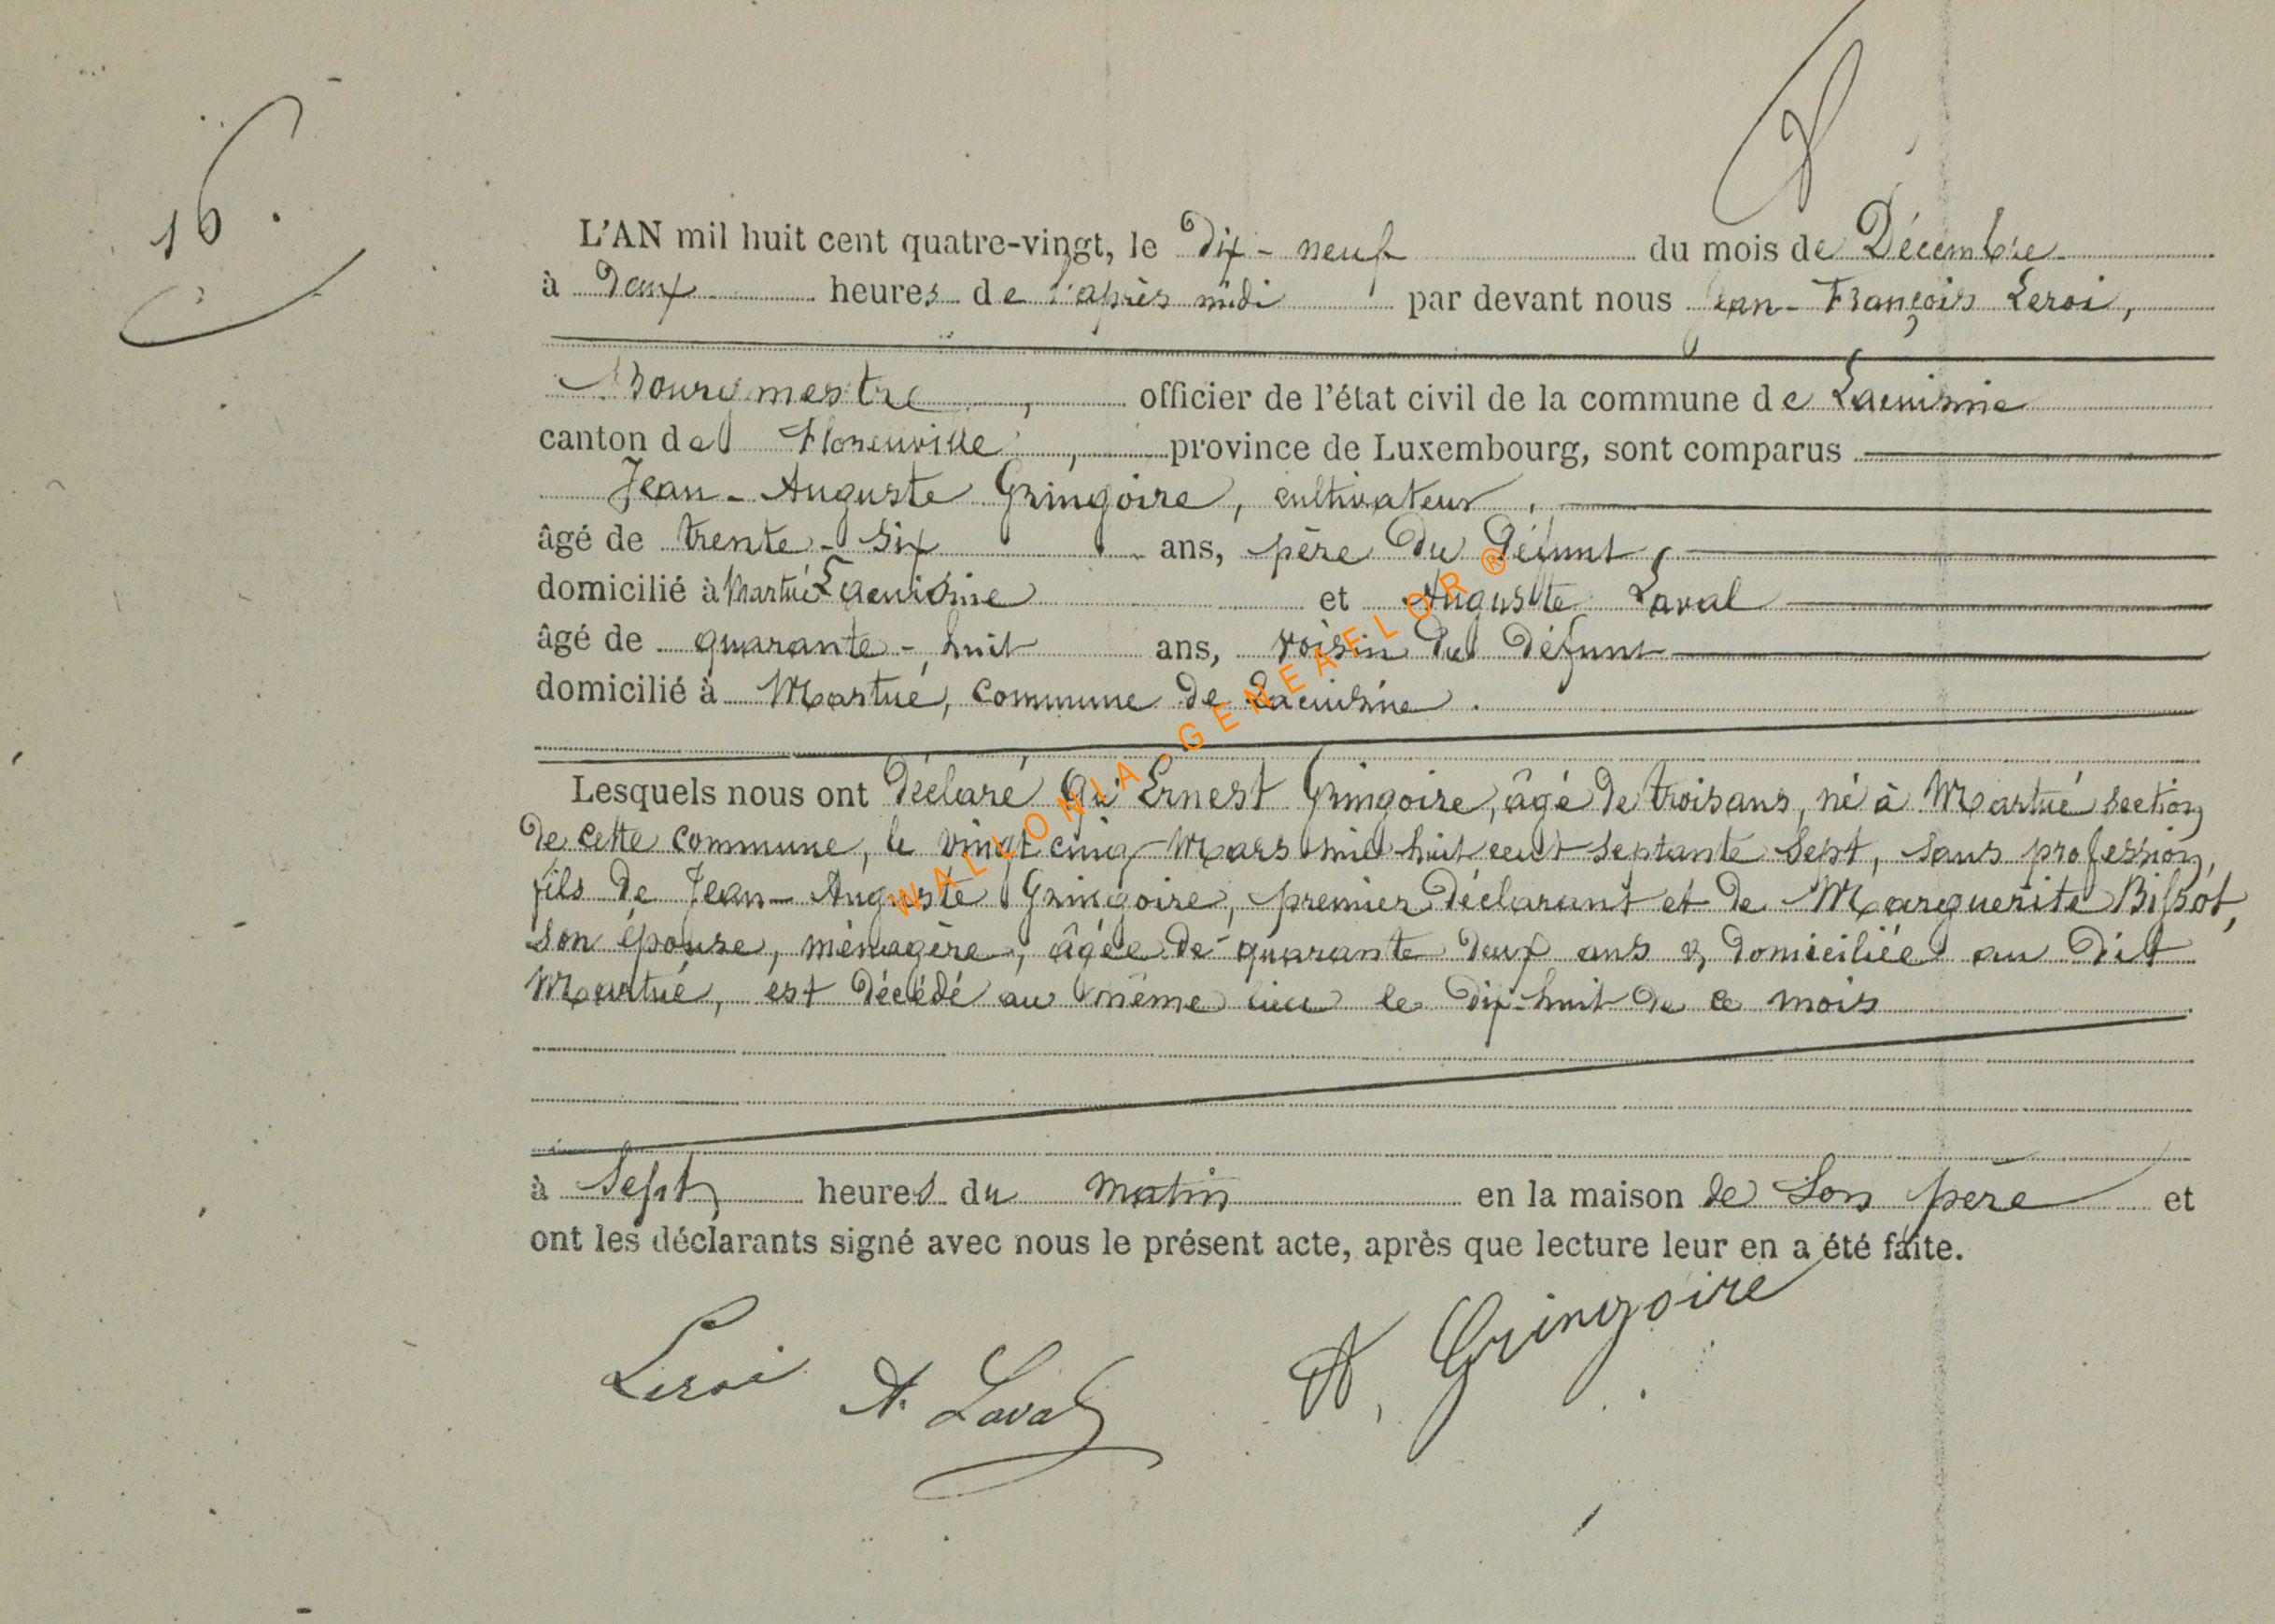 16
L'AN mil huit cent quatre-vingt, le Dix-neuf du mois de Décembre
à Deux heures de l'après midi par devant nous Jean-François Leroi,
Bourgmestre, officier de l'état civil de la commune de Lacuisine
canton de Florenville, province de Luxembourg, sont comparus
Jean-Auguste Gringoire, cultivateur,
âgé de trente-six ans, père du Défunt,
domicilié à Martué Lacuisine et Auguste Laval
âgé de quarante-huit ans, voisin du Défunt
domicilié à Martué, commune de Lacuisine.
Lesquels nous ont Déclaré qu'Ernest Gringoire, âgé de trois ans, né à Martué section
de cette commune, le vingt cinq Mars mil huit cent septante sept, sans profession,
fils de Jean-Auguste Gringoire, premier Déclarant et de Marguerite Bissot,
son épouse, ménagère, âgée de quarante deux ans & domiciliée au dit
Martué, est Décédé au même lieu le Dix-huit de ce mois
à Sept heures du matin en la maison de son père et
ont les déclarants signé avec nous le présent acte, après que lecture leur en a été faite.
Leroi A. Laval A. Gringoire
WALLONIA-GENEAFLOR®